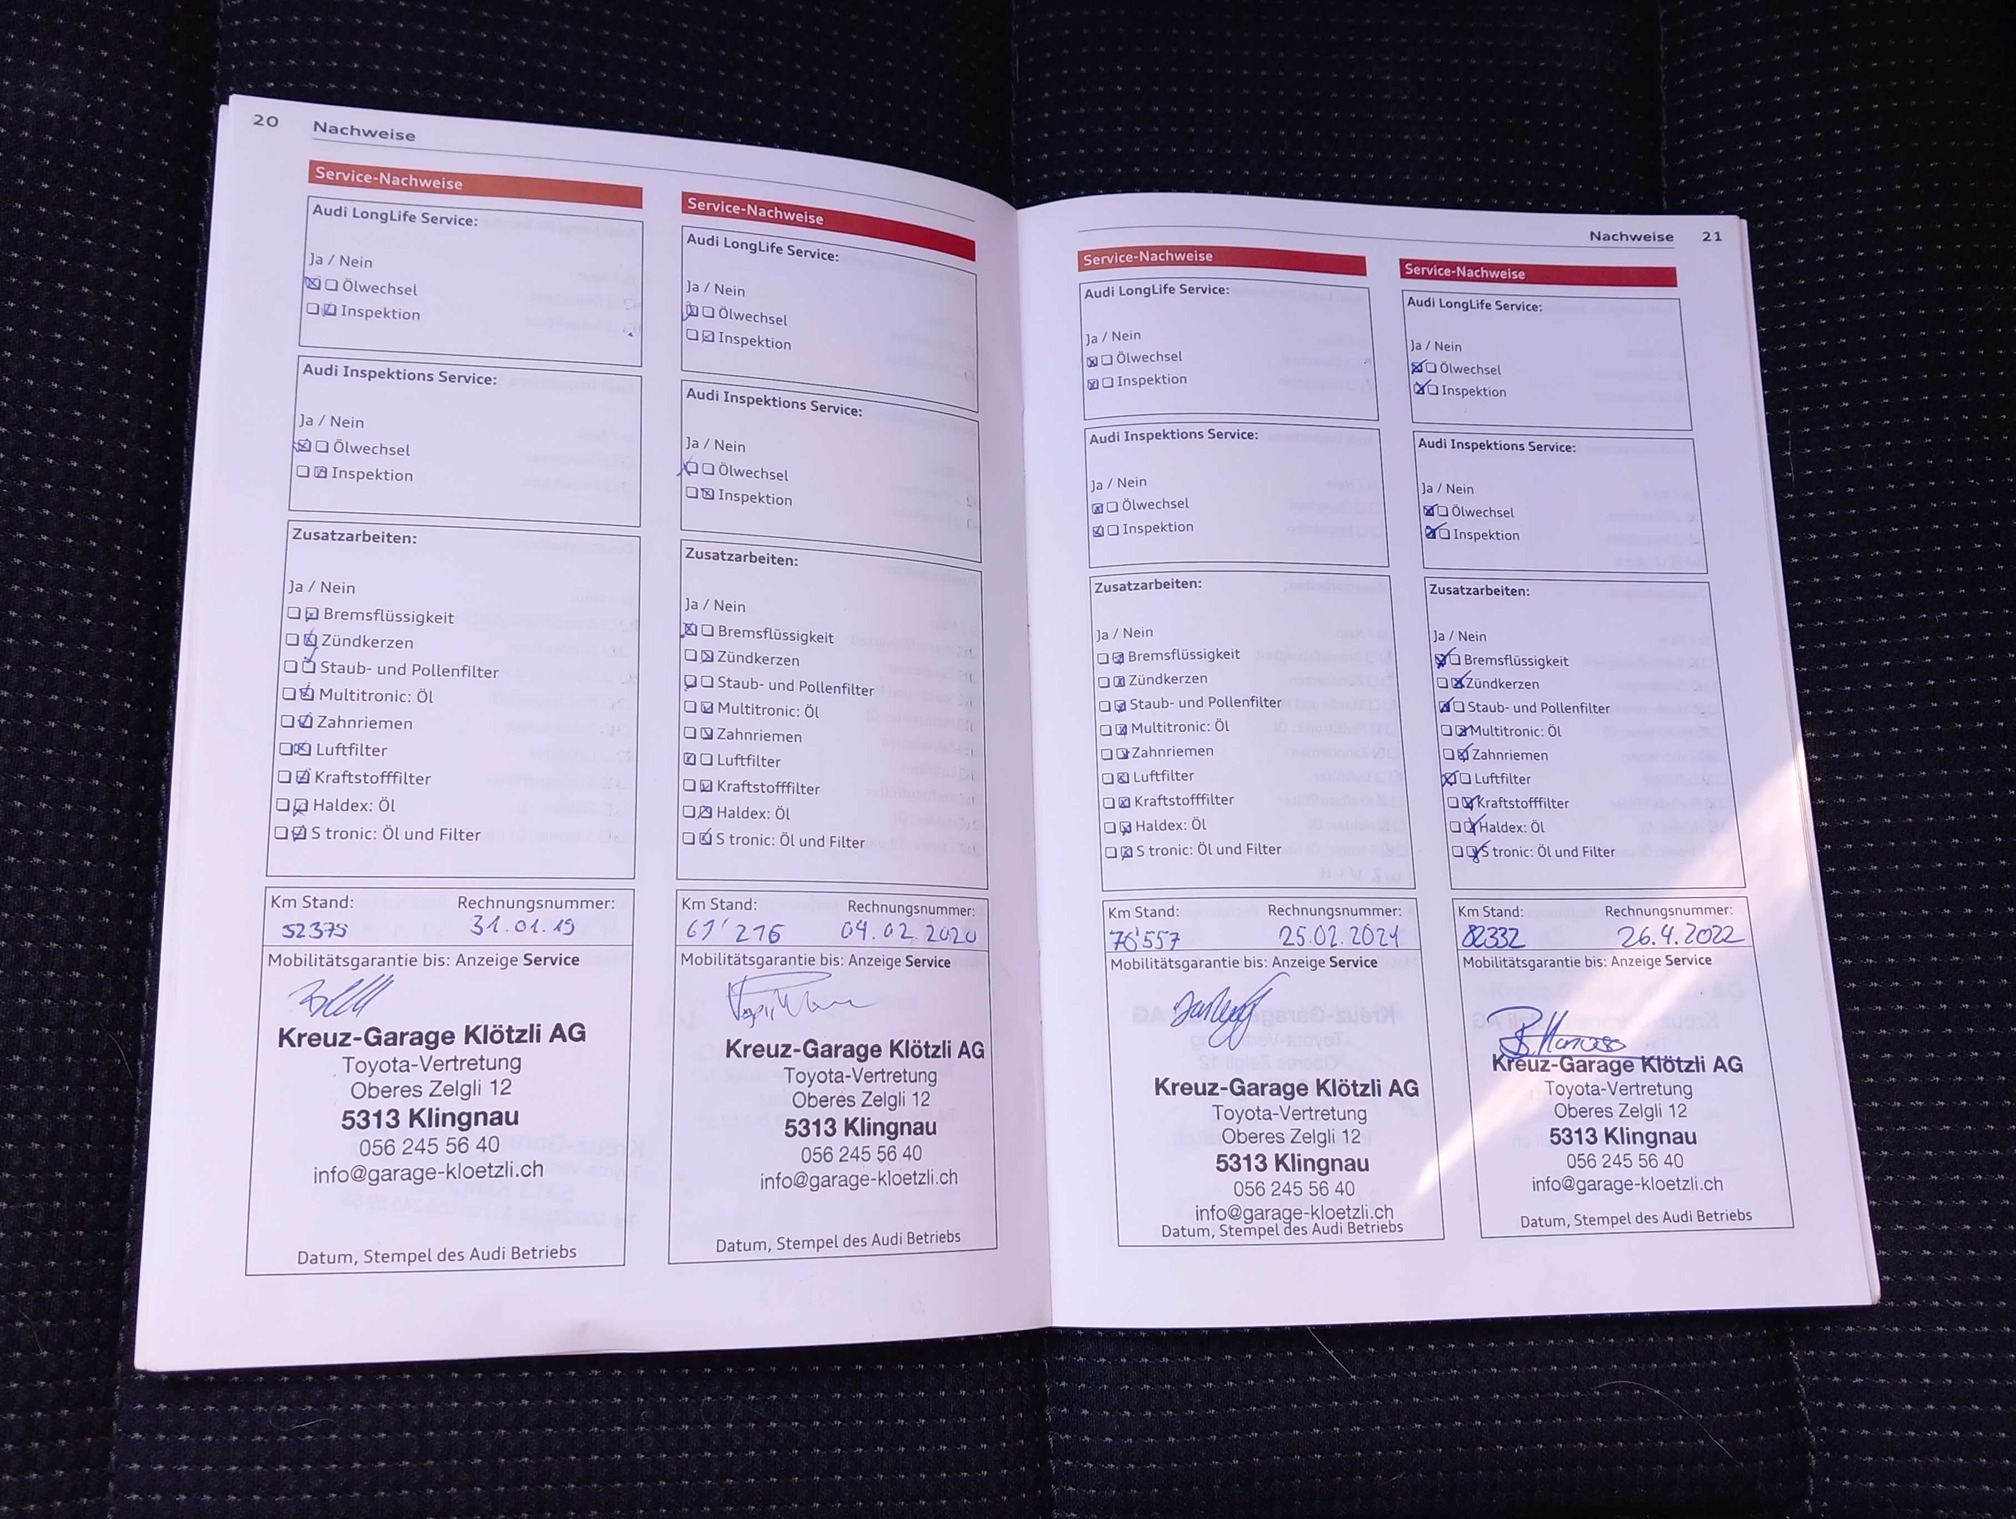 20 Nachweise
Service-Nachweise
Audi LongLife Service:
Ja / Nein
Ölwechsel
Inspektion
Audi Inspektions Service:
Ja / Nein
Ölwechsel
Inspektion
Zusatzarbeiten:
Ja / Nein
Bremsflüssigkeit
Zündkerzen
Staub- und Pollenfilter
Multitronic: Öl
Zahnriemen
Luftfilter
Kraftstofffilter
Haldex: Öl
S tronic: Öl und Filter
Km Stand: Rechnungsnummer:
52375 31.01.19
Mobilitätsgarantie bis: Anzeige Service
Kreuz-Garage Klötzli AG
Toyota-Vertretung
Oberes Zelgli 12
5313 Klingnau
056 245 56 40
info@garage-kloetzli.ch
Datum, Stempel des Audi Betriebs
Service-Nachweise
Audi LongLife Service:
Ja / Nein
Ölwechsel
Inspektion
Audi Inspektions Service:
Ja / Nein
Ölwechsel
Inspektion
Zusatzarbeiten:
Ja / Nein
Bremsflüssigkeit
Zündkerzen
Staub- und Pollenfilter
Multitronic: Öl
Zahnriemen
Luftfilter
Kraftstofffilter
Haldex: Öl
S tronic: Öl und Filter
Km Stand: Rechnungsnummer:
61'216 04.02.2020
Mobilitätsgarantie bis: Anzeige Service
Kreuz-Garage Klötzli AG
Toyota-Vertretung
Oberes Zelgli 12
5313 Klingnau
056 245 56 40
info@garage-kloetzli.ch
Datum, Stempel des Audi Betriebs
Nachweise 21
Service-Nachweise
Audi LongLife Service:
Ja / Nein
Ölwechsel
Inspektion
Audi Inspektions Service:
Ja / Nein
Ölwechsel
Inspektion
Zusatzarbeiten:
Ja / Nein
Bremsflüssigkeit
Zündkerzen
Staub- und Pollenfilter
Multitronic: Öl
Zahnriemen
Luftfilter
Kraftstofffilter
Haldex: Öl
S tronic: Öl und Filter
Km Stand: Rechnungsnummer:
76'557 25.02.2021
Mobilitätsgarantie bis: Anzeige Service
Kreuz-Garage Klötzli AG
Toyota-Vertretung
Oberes Zelgli 12
5313 Klingnau
056 245 56 40
info@garage-kloetzli.ch
Datum, Stempel des Audi Betriebs
Service-Nachweise
Audi LongLife Service:
Ja / Nein
Ölwechsel
Inspektion
Audi Inspektions Service:
Ja / Nein
Ölwechsel
Inspektion
Zusatzarbeiten:
Ja / Nein
Bremsflüssigkeit
Zündkerzen
Staub- und Pollenfilter
Multitronic: Öl
Zahnriemen
Luftfilter
Kraftstofffilter
Haldex: Öl
S tronic: Öl und Filter
Km Stand: Rechnungsnummer:
82332 26.4.2022
Mobilitätsgarantie bis: Anzeige Service
Kreuz-Garage Klötzli AG
Toyota-Vertretung
Oberes Zelgli 12
5313 Klingnau
056 245 56 40
info@garage-kloetzli.ch
Datum, Stempel des Audi Betriebs